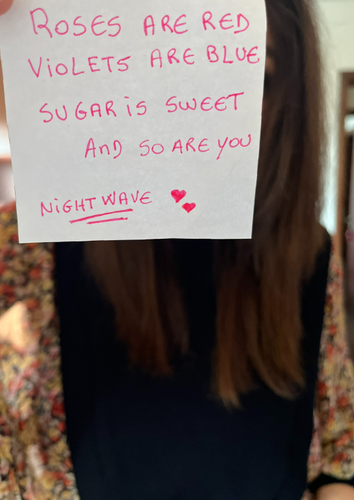 ROSES ARE RED
ViOLETS ARE BLUE
SUGAR iS SWEET
AND SO ARE YOU
NiGHT WAVE